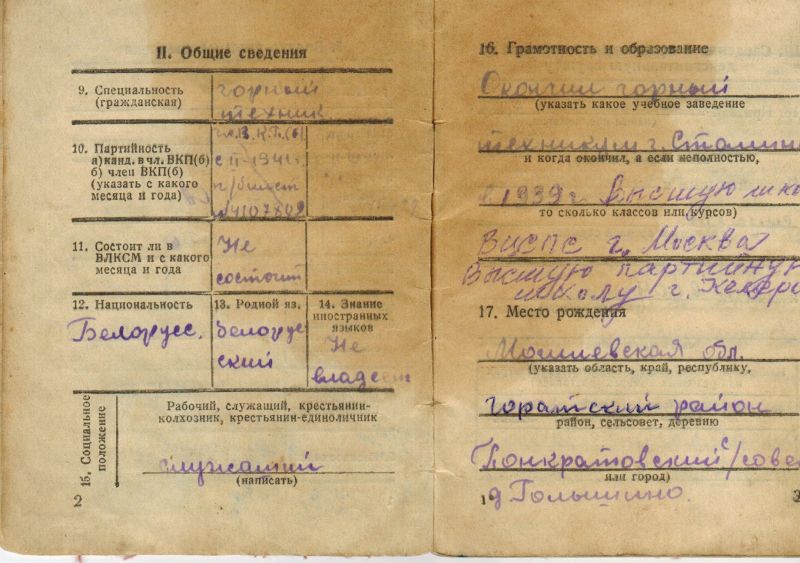 II. Общие сведения
9. Специальность
(гражданская)
горный
техник
10. Партийность
а) канд. в чл. ВКП(б)
б) член ВКП(б)
(указать с какого
месяца и года)
В.К.П.(б)
с II-1941г.
п/билет
№4107809
11. Состоит ли в
ВЛКСМ и с какого
месяца и года
Не
состоит
12. Национальность
Белорусс.
13. Родной яз.
белорус
ский
14. Знание
иностранных
языков
Не
владеет
15. Социальное
положение
Рабочий, служащий, крестьянин-
колхозник, крестьянин-единоличник
служащий
(написать)
2
16. Грамотность и образование
Окончил горный
(указать какое учебное заведение
техникум г. Сталино
и когда окончил, а если неполностью,
в 1939г. Высшую шко
то сколько классов или курсов)
ВЦСПС г. Москва
Высшую партийную
школу г.
17. Место рождения
Могилевская обл.
(указать область, край, республику,
район
район, сельсовет, деревню
Понкратовский с/сове
или город)
д Голышино.
3